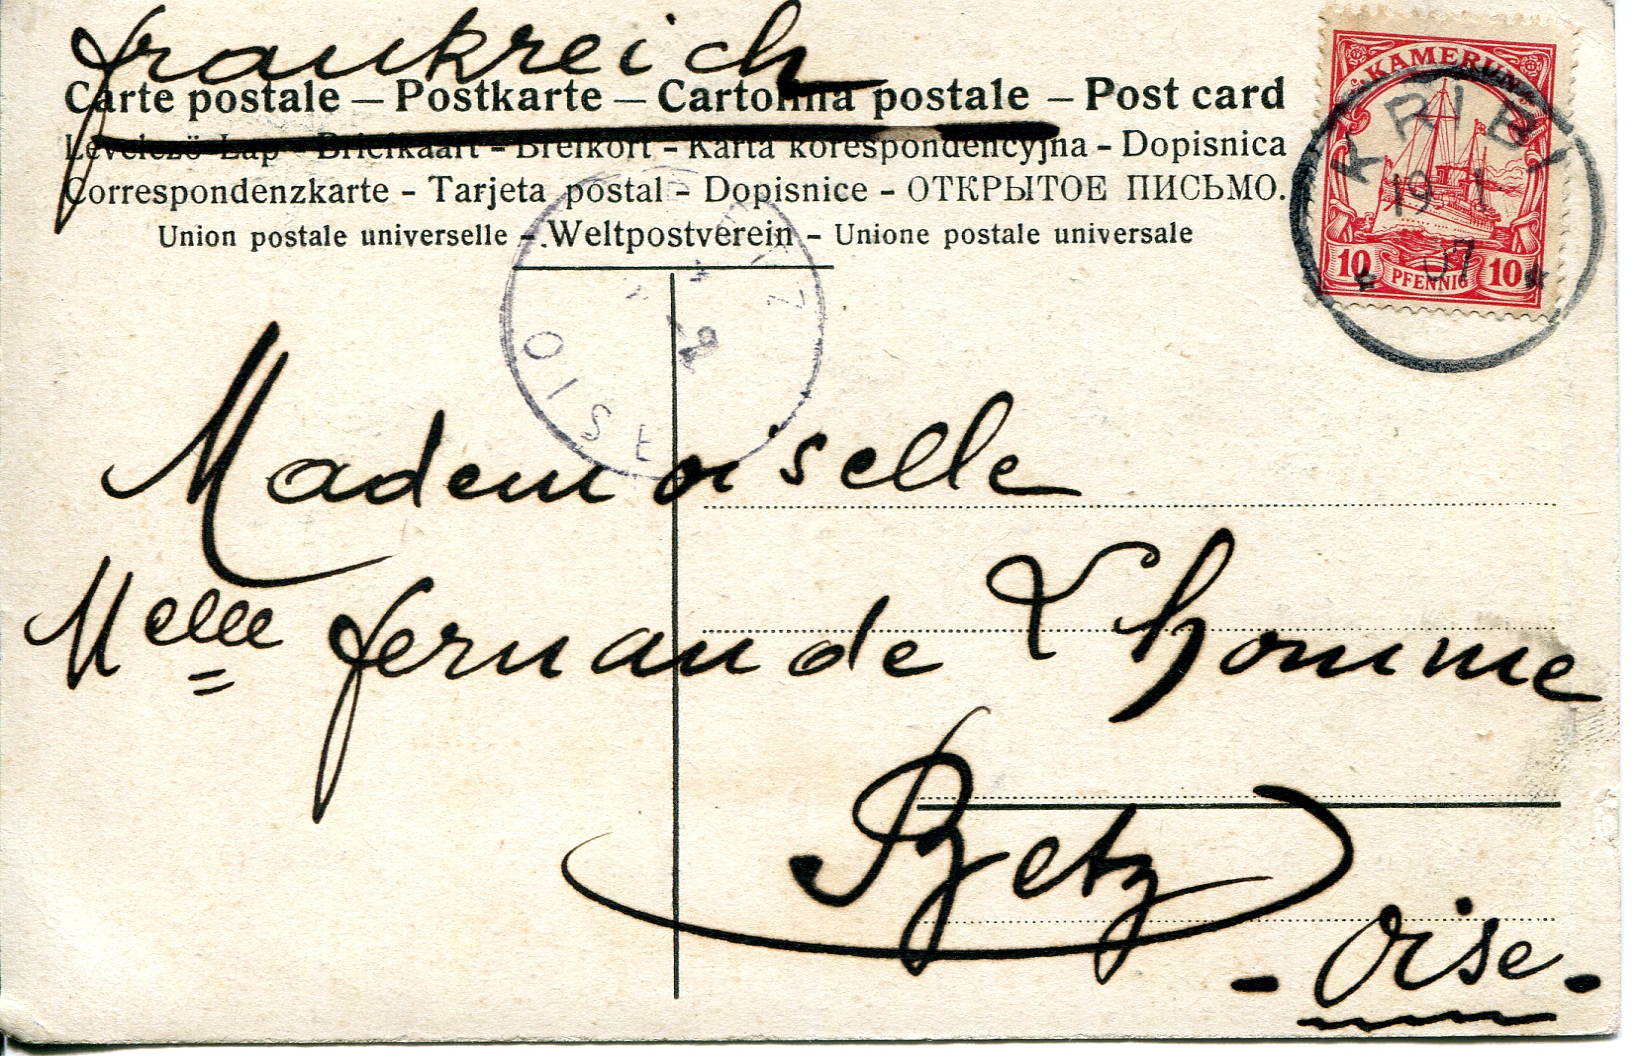 Frankreich
Carte postale – Postkarte – Cartolina postale – Post card
Levelező-Lap – Briefkaart – Brefkort – Karta korespondencyjna – Dopisnica
Correspondenzkarte – Tarjeta postal – Dopisnice – ОТКРЫТОЕ ПИСЬМО.
Union postale universelle – Weltpostverein – Unione postale universale
KAMERUN
10 PFENNIG 10
KRIBI
19 1
07
OISE
Mademoiselle
Melle Fernande Lhomme
Betz
- Oise -